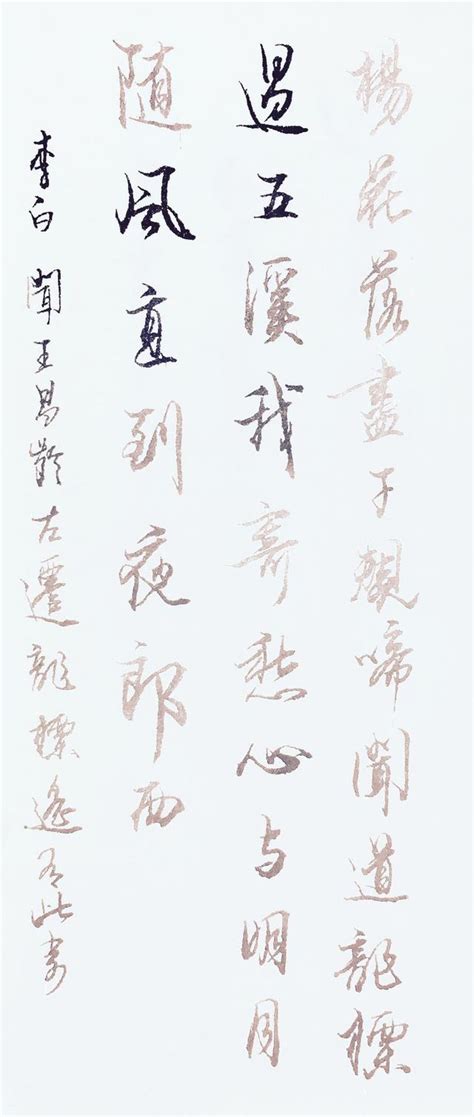 楊花落盡子規啼聞道龍標
過五溪我寄愁心与明月
随風直到夜郎西
李白聞王昌齡左遷龍標遙有此寄